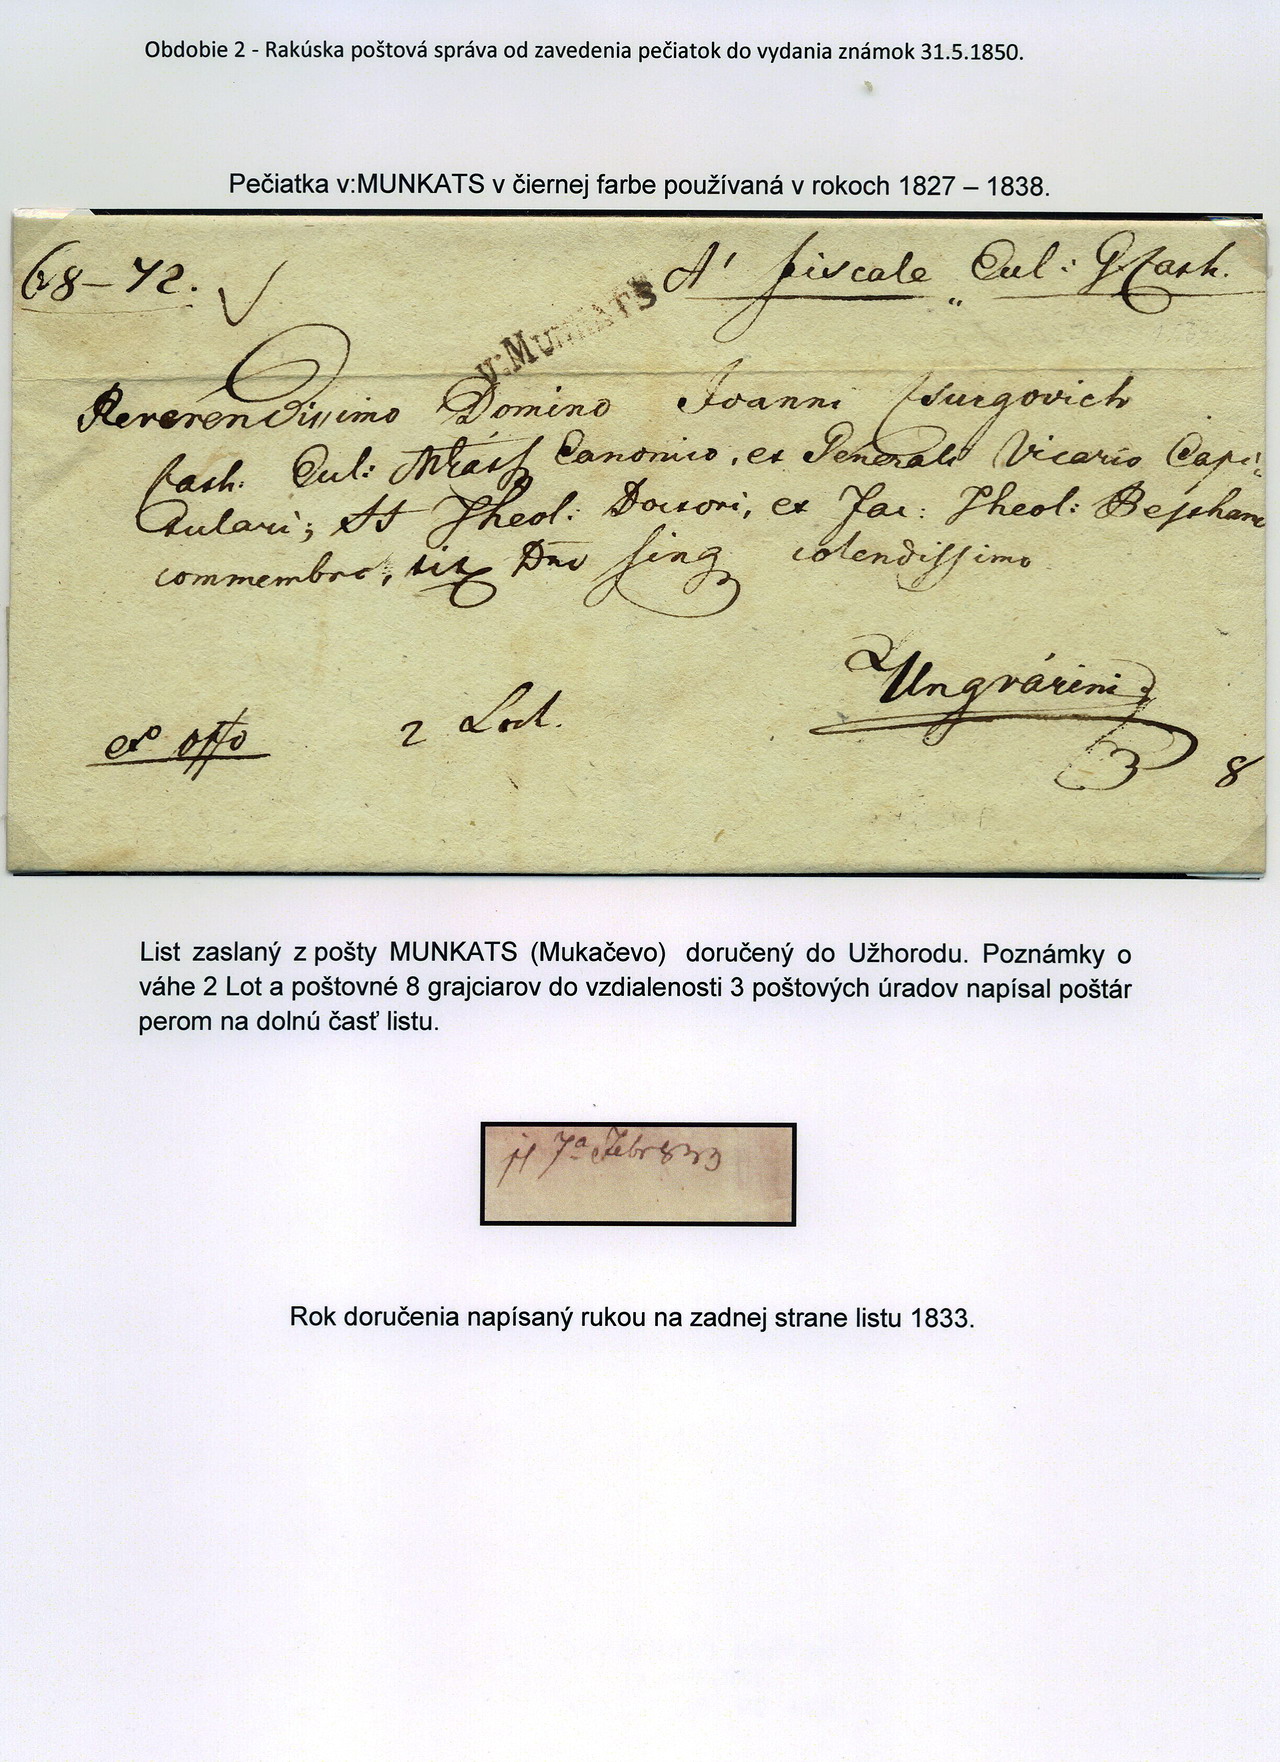 Obdobie 2 - Rakúska poštová správa od zavedenia pečiatok do vydania známok 31.5.1850.
Pečiatka v:MUNKATS v čiernej farbe používaná v rokoch 1827 – 1838.
68–72.
A' fiscale Cul: G Cath.
v:MUNKATS
Reverendissimo Domino Joanni Csurgovich
Cath. Cul: Canonico, et Generali Vicario Capi:
tulari; SS Theol: Doctori, et Fac: Theol:
commembro, tit Dno sing colendissimo
Ungvárini
ex offo
2 Loth.
8
List zaslaný z pošty MUNKATS (Mukačevo) doručený do Užhorodu. Poznámky o
váhe 2 Lot a poštovné 8 grajciarov do vzdialenosti 3 poštových úradov napísal poštár
perom na dolnú časť listu.
7a Febr 833
Rok doručenia napísaný rukou na zadnej strane listu 1833.